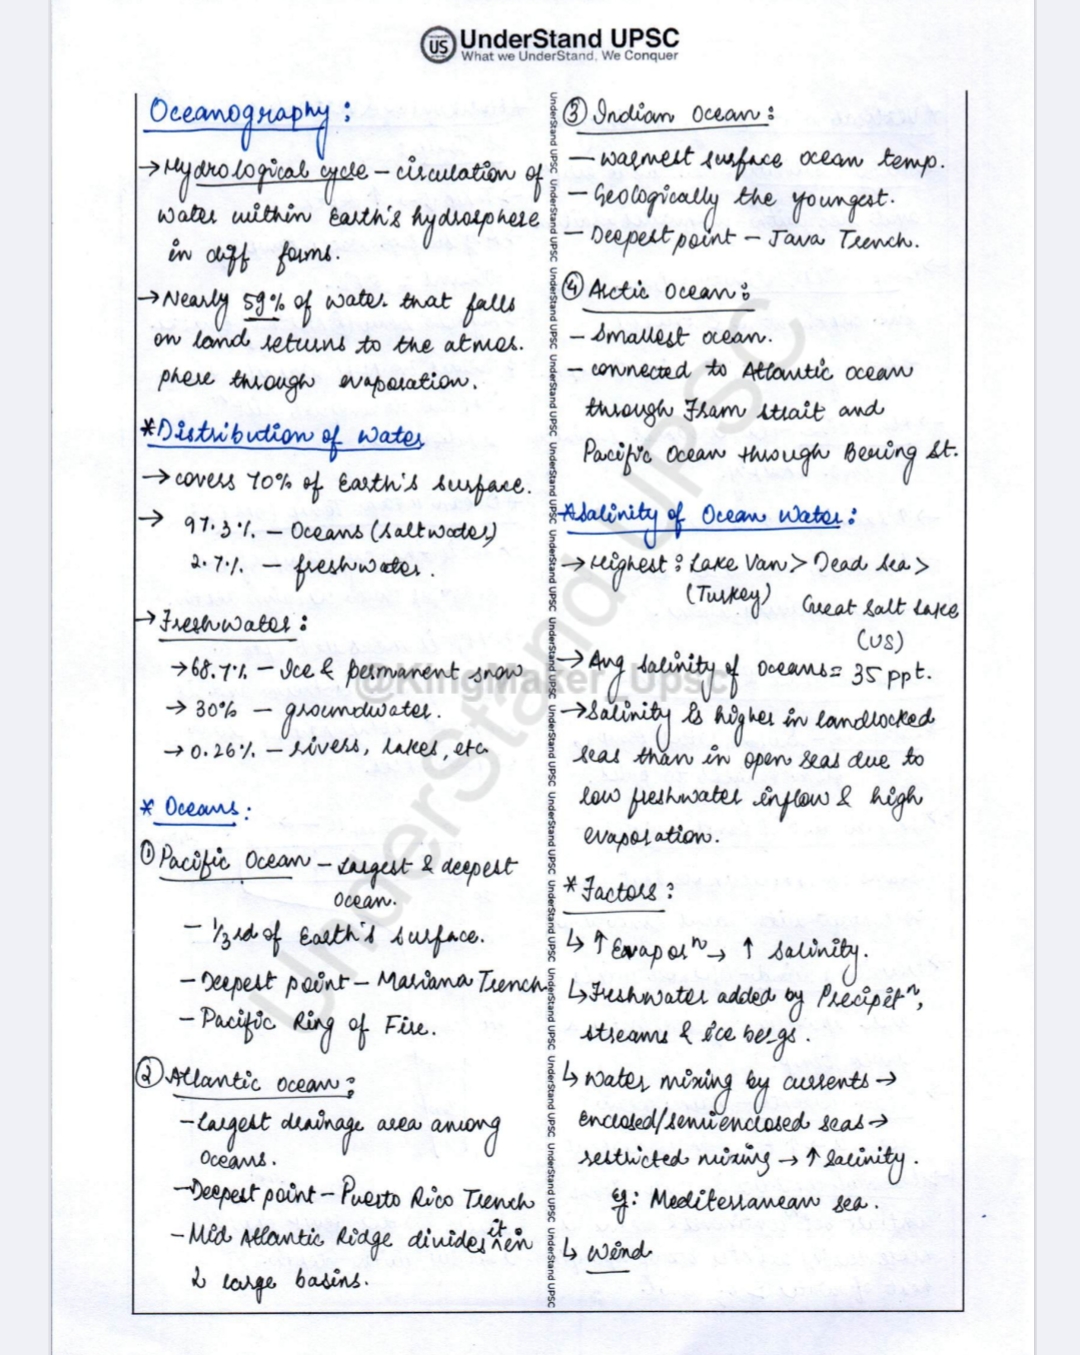 US UnderStand UPSC
What we UnderStand, We Conquer
Oceanography :
→ Hydrological cycle – circulation of
water within Earth's hydrosphere
in diff forms.
→ Nearly 59% of water that falls
on land returns to the atmos.
phere through evaporation.
* Distribution of water
→ covers 70% of Earth's surface.
→ 97.3% – Oceans (saltwater)
2.7% – freshwater.
→ Freshwater :
→ 68.7% – Ice & permanent snow
→ 30% – groundwater.
→ 0.26% – rivers, lakes, etc
* Oceans :
① Pacific Ocean – Largest & deepest
ocean.
– 1/3rd of Earth's surface.
– Deepest point – Mariana Trench
– Pacific Ring of Fire.
② Atlantic ocean :
– Largest drainage area among
oceans.
– Deepest point – Puerto Rico Trench
– Mid Atlantic Ridge divides it in
2 large basins.
③ Indian Ocean :
– warmest surface ocean temp.
– Geologically the youngest.
– Deepest point – Java Trench.
④ Arctic Ocean :
– Smallest ocean.
– connected to Atlantic ocean
through Fram strait and
Pacific Ocean through Bering St.
* Salinity of Ocean Water :
→ Highest : Lake Van > Dead Sea >
(Turkey) Great Salt Lake
(US)
→ Avg salinity of oceans = 35 ppt.
→ Salinity is higher in landlocked
seas than in open seas due to
low freshwater inflow & high
evaporation.
* Factors :
↳ ↑ Evaporⁿ → ↑ salinity.
↳ Freshwater added by Precipitⁿ,
streams & ice bergs.
↳ water mixing by currents →
enclosed/semi enclosed seas →
restricted mixing → ↑ salinity.
Eg: Mediterranean sea.
↳ Wind
@KingMaker_Upsc
UnderStand UPSC
UnderStand UPSC UnderStand UPSC UnderStand UPSC UnderStand UPSC UnderStand UPSC UnderStand UPSC UnderStand UPSC UnderStand UPSC UnderStand UPSC UnderStand UPSC UnderStand UPSC UnderStand UPSC UnderStand UPSC UnderStand UPSC